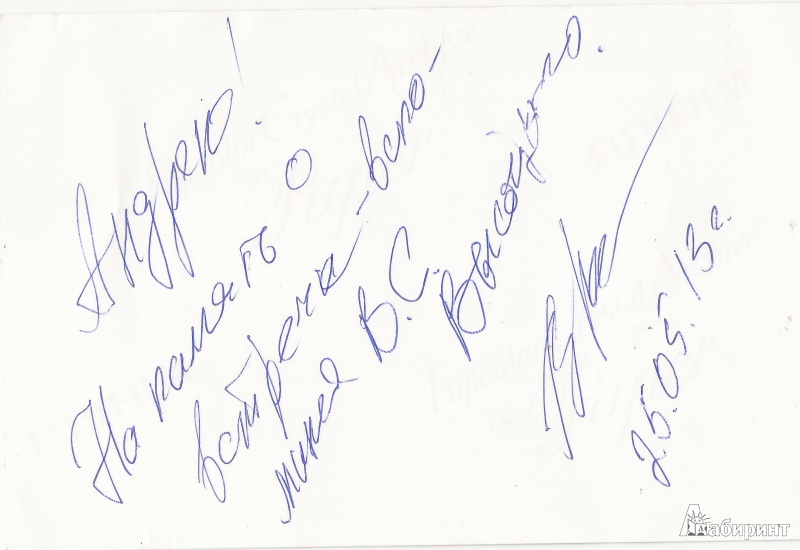 Андрею!
На память о
встречах – вспо-
миная В.С.
Высоцкого.
25.05.13г.
FUJIFILM
Fujicolor Crystal Archive
Paper
Лабиринт